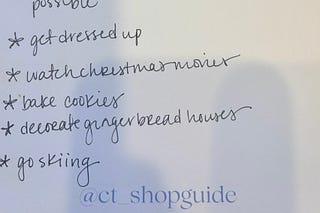 possible
* get dressed up
* watch christmas movies
* bake cookies
* decorate gingerbread houses
* go skiing
@ct_shopguide